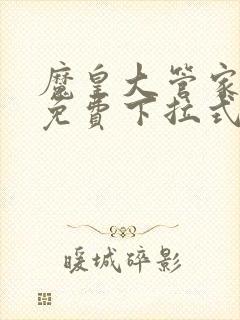 魔皇大管家
免費下拉式
暖城碎影